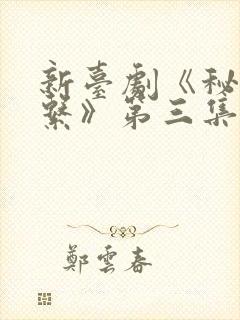 新臺劇《秘
繫》第三集
鄭雲春